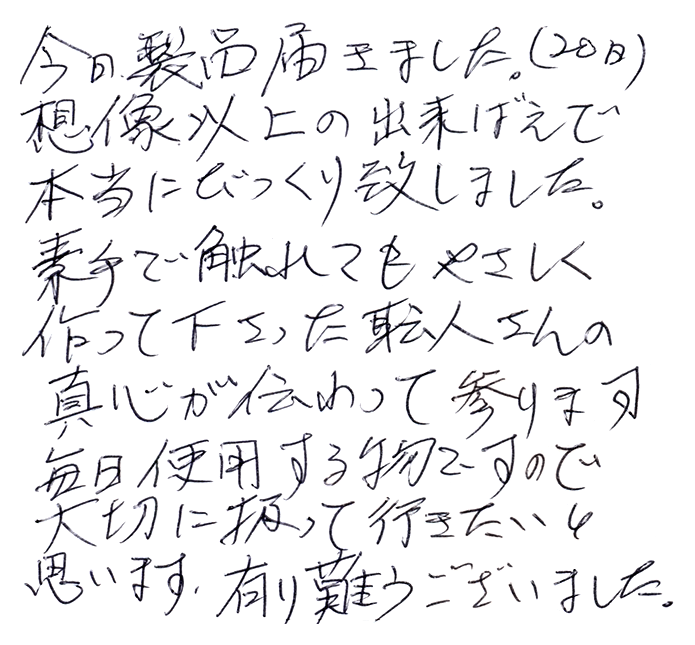 今日製品届きました。(20日)
想像以上の出来ばえで
本当にびっくり致しました。
素手で触れてもやさしく
作って下さった職人さんの
真心が伝わって参ります
毎日使用する物ですので
大切に扱って行きたいと
思います。有り難うございました。